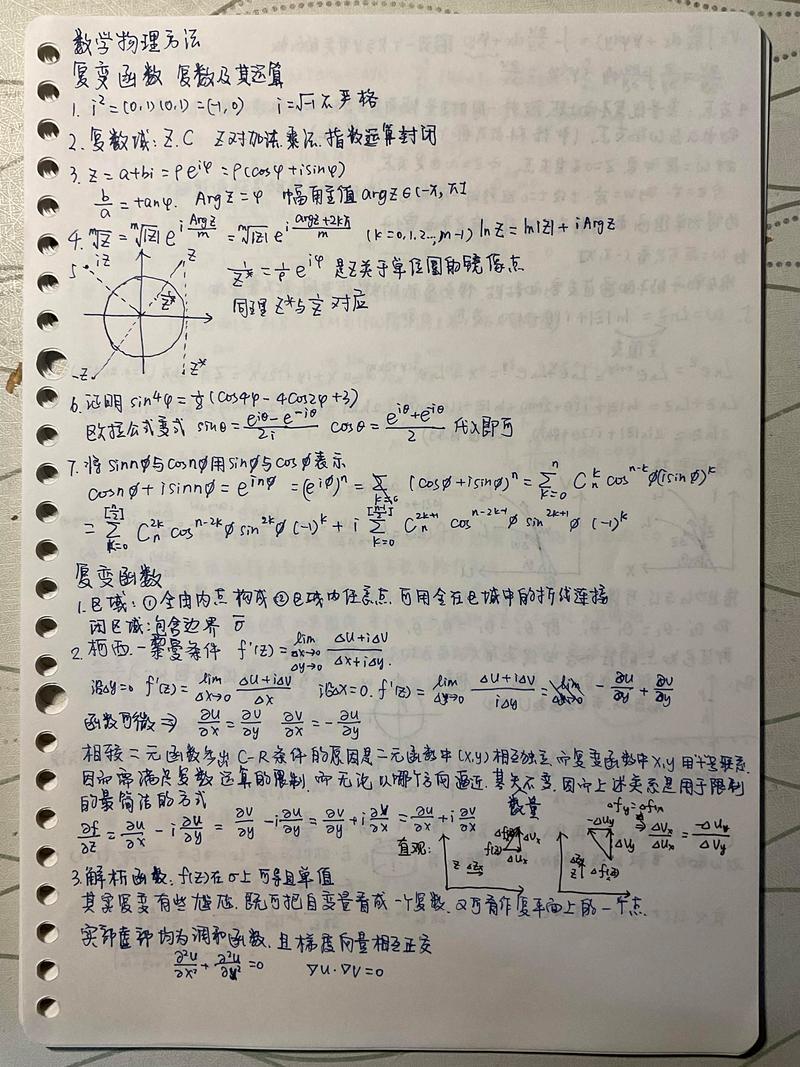 数学物理方法
复变函数 复数及其运算
1. i² = (0,1)(0,1) = (-1,0) i=√-1 不严格
2. 复数域: Z. C Z对加法乘法.指数运算封闭
3. z = a+bi = ρe^{iφ} = ρ(cosφ+isinφ)
b/a = tanφ. Arg z = φ 幅角主值 arg z ∈ (-π, π]
4. ᵐ√z = ᵐ√|z| e^{i Argz/m} = ᵐ√|z| e^{i (argz+2kπ)/m} (k=0,1,2...,m-1) ln z = ln|z| + i Arg z
5. iz z
z* 1/z* = 1/ρ e^{iφ} 是z关于单位圆的镜像点
同理 z*与 1/z 对应
-z z*
6. 证明 sin⁴φ = 1/8 (cos4φ - 4cos2φ+3)
欧拉公式变式 sinθ = (e^{iθ} - e^{-iθ})/2i cosθ = (e^{iθ}+e^{iθ})/2 代入即可
7. 将 sinnφ与cosnφ用sinφ与cosφ表示
cosnφ + isinnφ = e^{inφ} = (e^{iφ})ⁿ = (cosφ+isinφ)ⁿ = Σ_{k=0}^{n} C_n^k cos^{n-k}φ(isinφ)^k
= Σ_{k=0}^{[n/2]} C_n^{2k} cos^{n-2k}φ sin^{2k}φ (-1)^k + i Σ_{k=0} C_n^{2k+1} cos^{n-2k-1}φ sin^{2k+1}φ (-1)^k
复变函数
1. 区域: ①全由内点构成 ②区域内任意点.可用全在区域中的折线连接
闭区域:包含边界 σ̅
2. 柯西-黎曼条件 f'(z) = lim_{Δx→0 Δy→0} (Δu+iΔv)/(Δx+iΔy).
沿Δy=0 f'(z) = lim_{Δx→0} (Δu+iΔv)/Δx 沿Δx=0. f'(z) = lim_{Δy→0} (Δu+iΔv)/(iΔy) = - ∂u/∂y + ∂v/∂y
函数可微 ⇒ ∂u/∂x = ∂v/∂y ∂v/∂x = - ∂u/∂y
相较二元函数多出C-R条件的原因是二元函数中(x,y)相互独立,而复变函数中x,y用i联系.
因而需满足复数运算的限制.而无论以哪个方向逼近.其矢不变.因而上述关系是用于限制
的最简洁的方式
∂f/∂z = ∂u/∂x - i ∂u/∂y = ∂v/∂y - i ∂u/∂y = ∂v/∂y + i ∂v/∂x = ∂u/∂x + i ∂v/∂x
直观: z Δzx f(z) Δvx Δux
z Δzy -Δuy Δvy Δf(z)
∘fy=∘fx ⇒ Δvx/Δux = -Δuy/Δvy
3. 解析函数. f(z)在σ上可导且单值
其实复变有些尴尬.既可把自变量看成一个复数.又可看作复平面上的一个点.
实部虚部均为调和函数.且梯度向量相互正交
∂²u/∂x² + ∂²u/∂y² = 0 ∇u·∇v=0